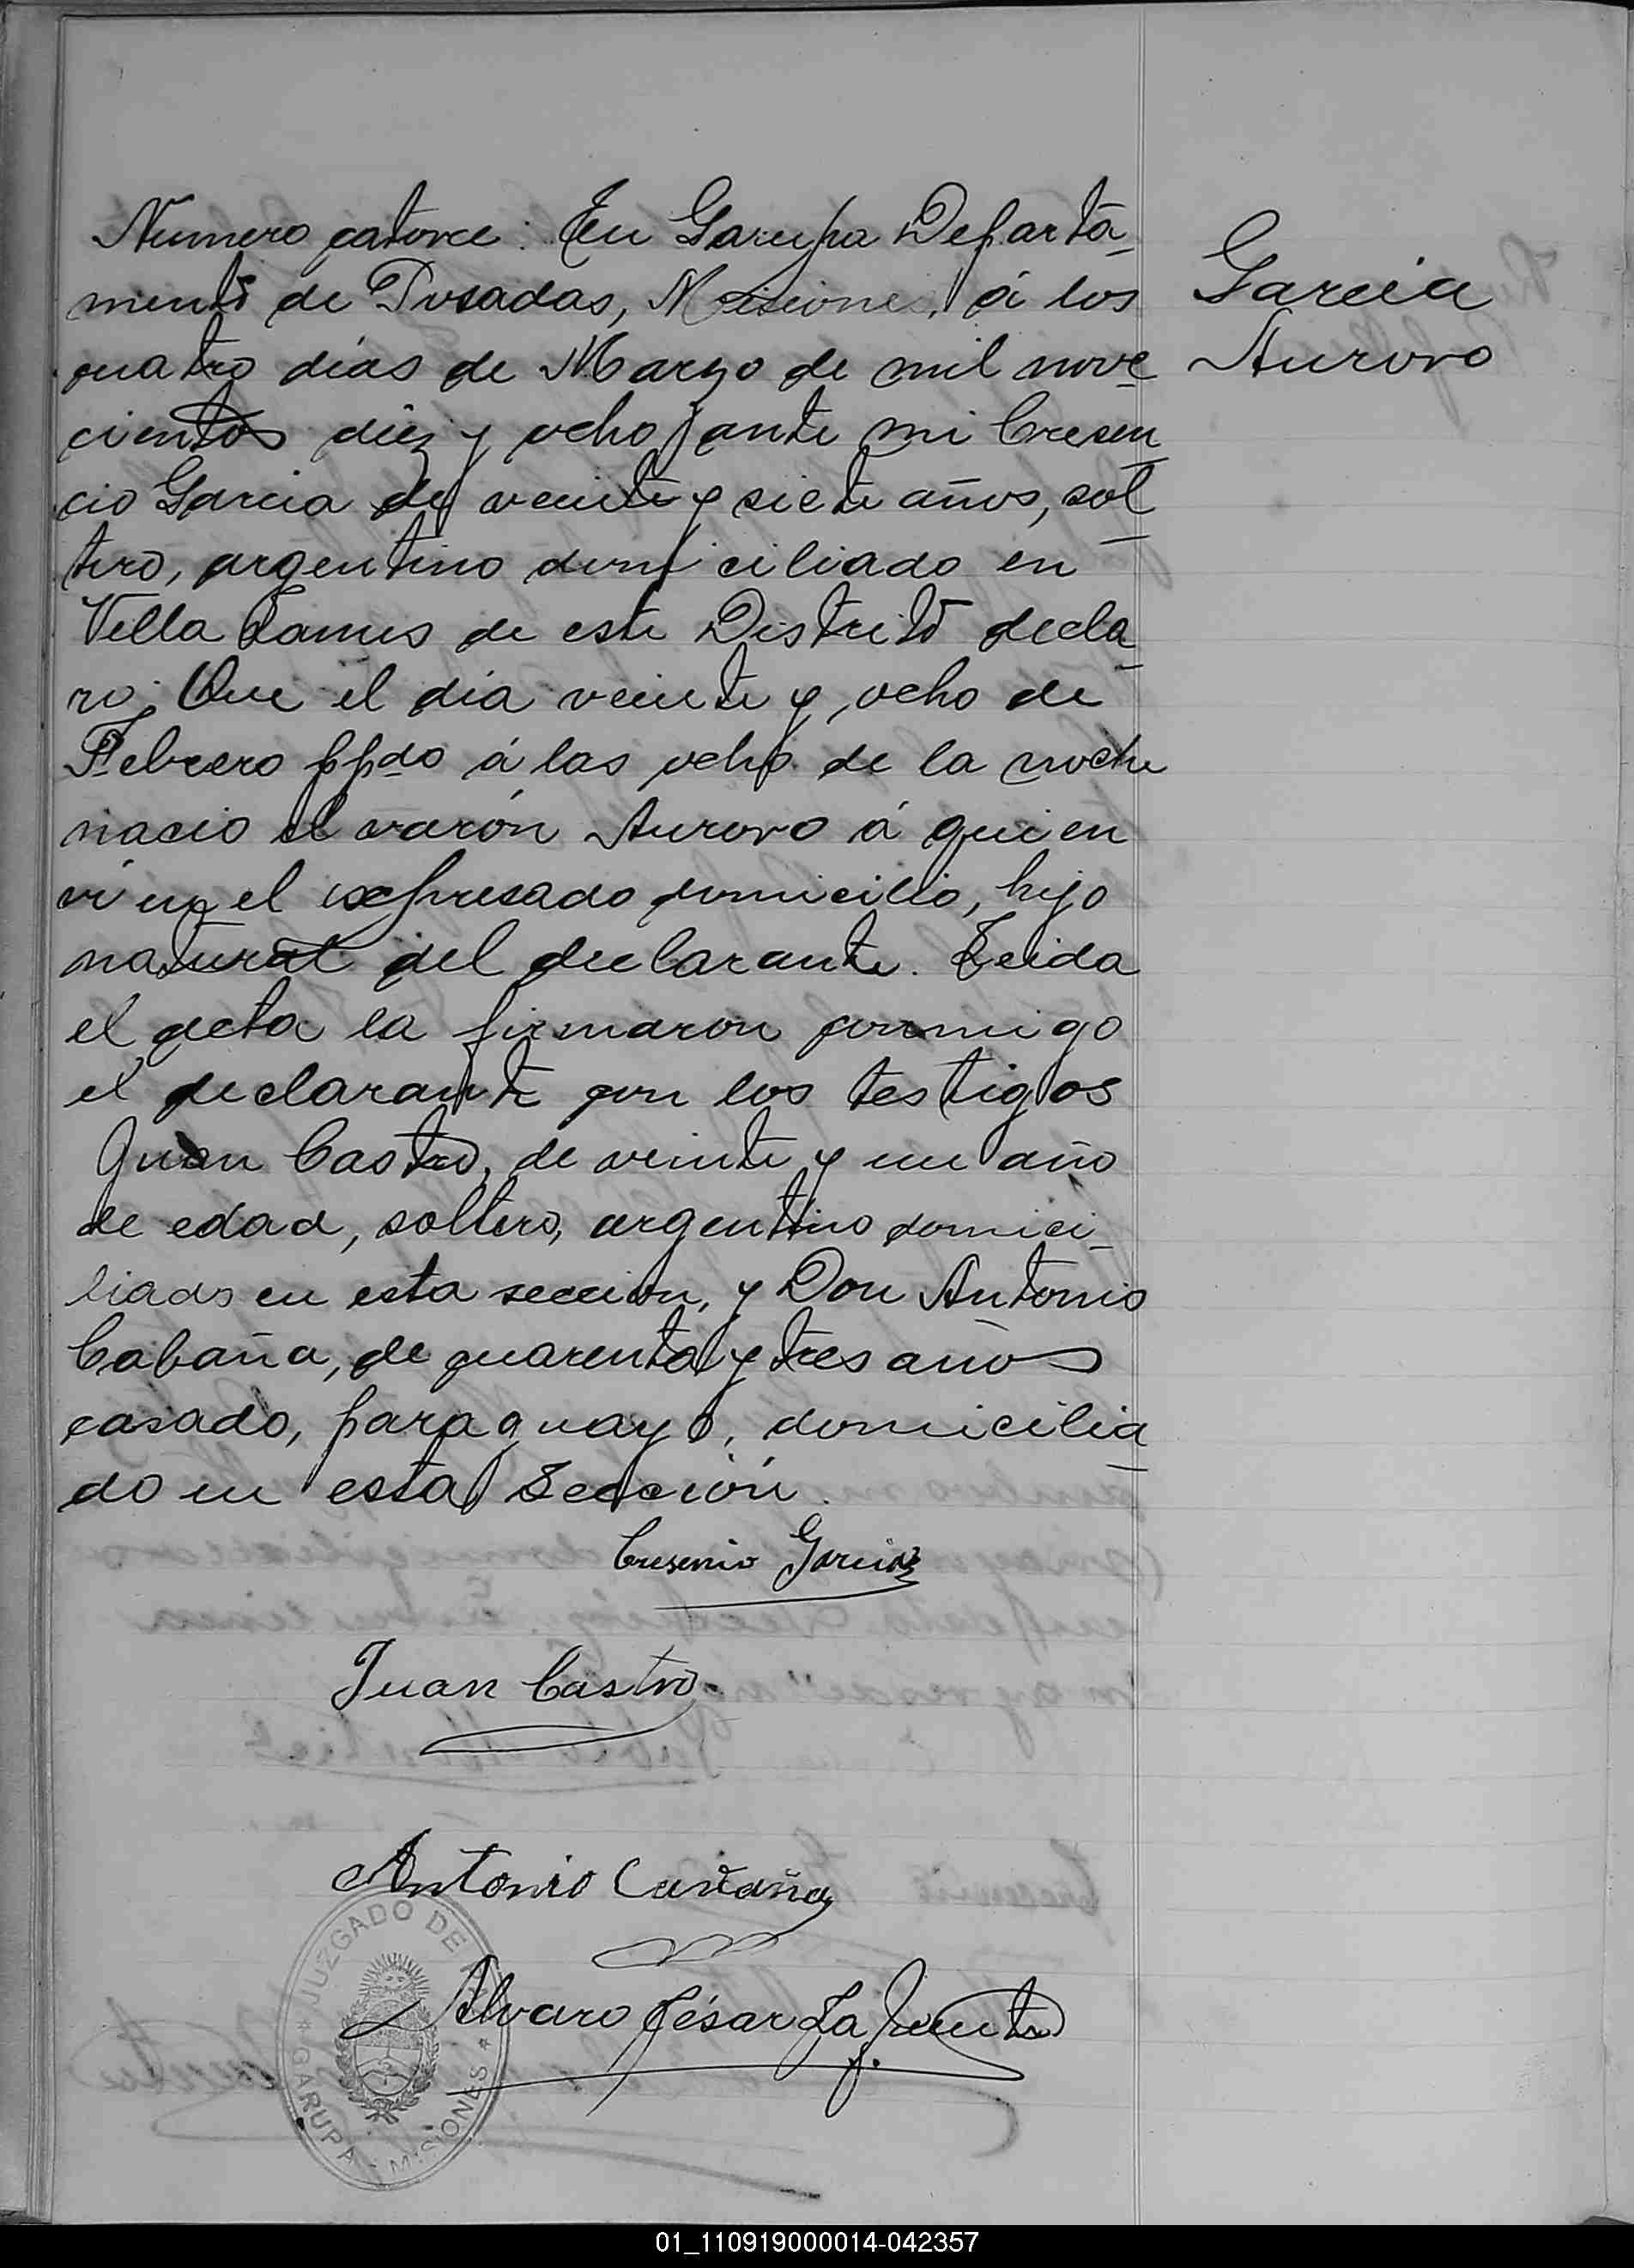 Numero catorce: En Garupa Departa-
mento de Posadas, Misiones, á los
cuatro días de Marzo de mil nove-
cientos diez y ocho, ante mi Cresen-
cio Garcia de veinte y siete años, sol-
tero, argentino domiciliado en
Villa Lanus de este Distrito decla-
ro: Que el día veinte y ocho de
Febrero ppdo á las ocho de la noche
nacio el varón Aurovo á quien
vi en el expresado domicilio, hijo
natural del declarante. Leida
el acta la firmaron conmigo
el declarante con los testigos
Juan Castro, de veinte y un año
de edad, soltero, argentino domici-
liado en esta seccion, y Don Antonio
Cabaña, de cuarenta y tres años
casado, paraguayo, domicilia-
do en esta Sección.
Garcia
Aurovo
Cresencio Garcia
Juan Castro
Antonio Cavaña
Alvaro César La Fuente
JUZGADO DE
GARUPA - MISIONES
01_110919000014-042357